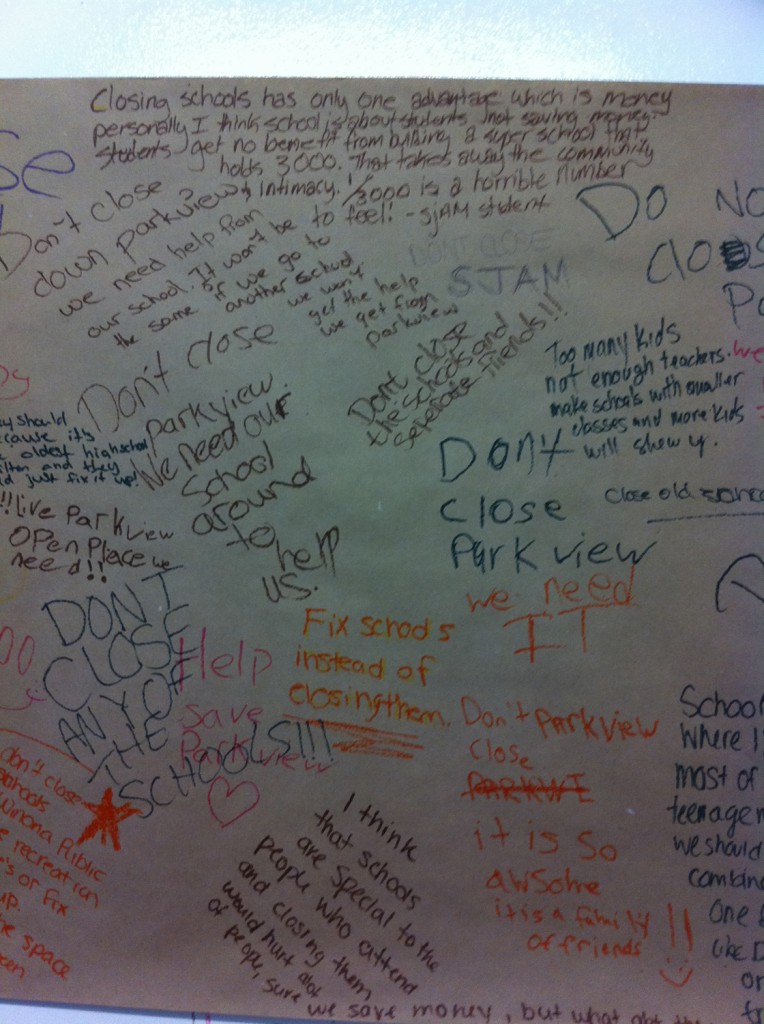 Closing schools has only one advantage which is money
personally I think school is about students not saving money.
Students get no benefit from building a super school that
holds 3000. That takes away the community
& Intimacy. 1/3000 is a horrible number
to feel! - SJAM student
Don't close
down parkview?
we need help from
our school. It won't be
the same if we go to
another school
we won't
get the help
we get from
parkview
DONT CLOSE
SJAM
DO NO
Clos
Pa
Don't close
parkview.
We need our
School
around
to
help
us.
Dont close
the schools and
seperate friends!!
Too many kids
not enough teachers. we
make schools with smaller
classes and more kids
will show y.
Close old
should
cause it's
oldest highschool
and they
just fix it up!
!!live Parkview
OPen Place we
need!!
DONT
CLOSE
ANY OF
THE
SCHOOLS!!!
Don't
close
Parkview
we need
IT
Help
save
Parkview
Fix schools
instead of
closing them.
Don't PARKVIEW
Close
PARKWI
it is so
awsome
it is a family
of friends !!
don't close
schools
Winona Public
recreation
's or fix
up.
space
een
I think
that schools
are special to the
people who attend
and closing them
would hurt alot
of people, sure
we save money, but what abt the
School
where I
most of
teenager
we should
combin
One
like D
or
fr